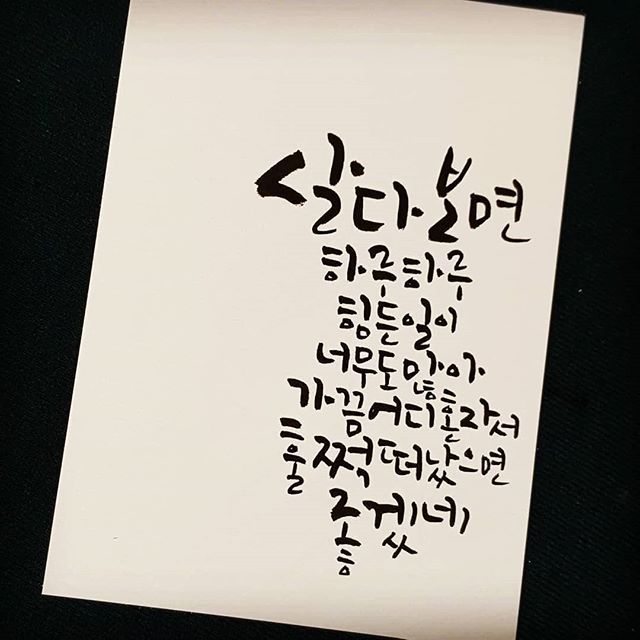 살다보면
하루하루
힘든일이
너무도 많아
가끔어디혼라서
훌쩍떠났으면
좋겠네